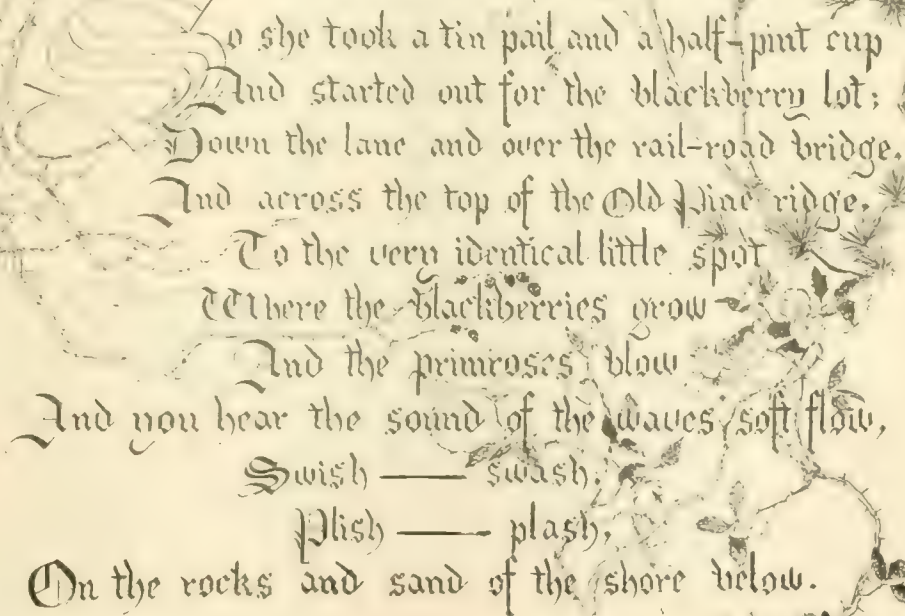 o she took a tin pail and a half-pint cup
And started out for the blackberry lot;
Down the lane and over the rail-road bridge,
And across the top of the Old Pine ridge,
To the very identical little spot
Where the blackberries grow
And the primroses blow
And you hear the sound of the waves' soft flow,
Swish — swash,
Plish — plash,
On the rocks and sand of the shore below.